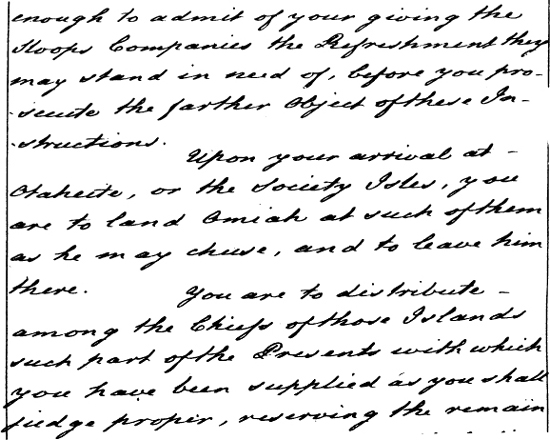 enough to admit of your giving the
Sloops Companies the Refreshment they
may stand in need of, before you pro-
-secute the farther Object of these In-
-structions.
Upon your arrival at -
Otaheite, or the Society Isles, you
are to land Omiah at such of them
as he may chuse, and to leave him
there. You are to distribute -
among the Chiefs of those Islands
such part of the Presents with which
you have been supplied as you shall
judge proper, reserving the remain